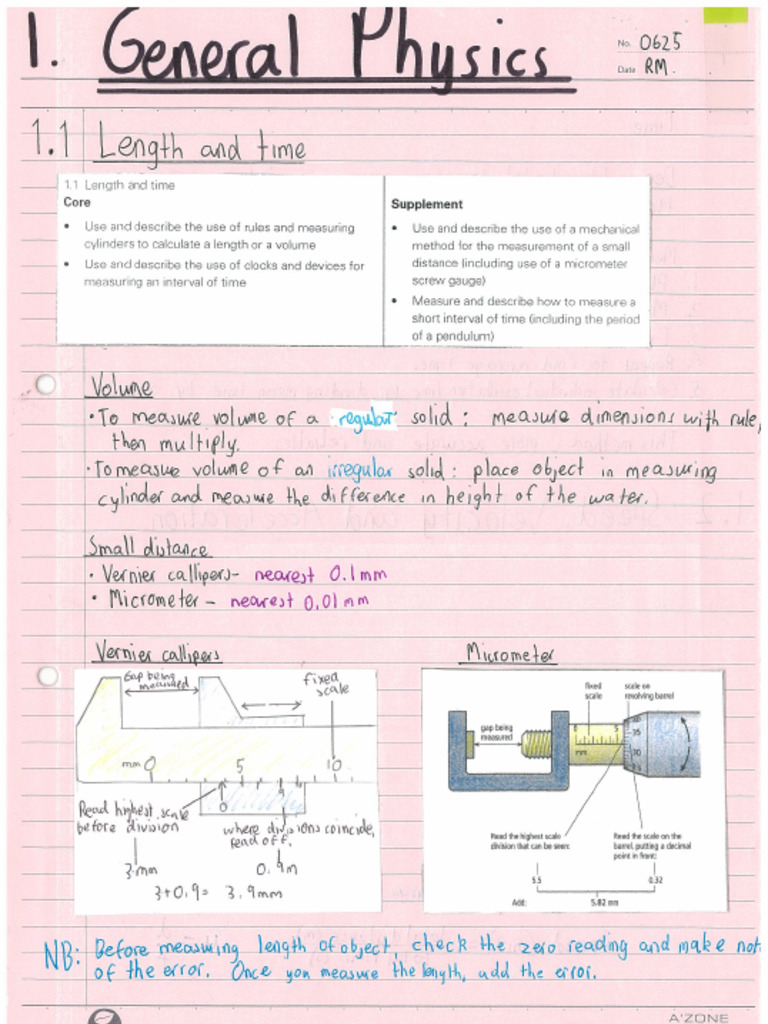 1. General Physics
No. 0625
Date RM.
1.1 Length and time
1.1 Length and time
Core
• Use and describe the use of rules and measuring
cylinders to calculate a length or a volume
• Use and describe the use of clocks and devices for
measuring an interval of time
Supplement
• Use and describe the use of a mechanical
method for the measurement of a small
distance (including use of a micrometer
screw gauge)
• Measure and describe how to measure a
short interval of time (including the period
of a pendulum)
Volume
• To measure volume of a regular solid : measure dimensions with rule,
then multiply.
• To measure volume of an irregular solid : place object in measuring
cylinder and measure the difference in height of the water.
Small distance
• Vernier callipers- nearest 0.1mm
• Micrometer - nearest 0.01mm
Vernier callipers
Gap being
measured
fixed
scale
mm 0 5 10
0
Read highest scale
before division
where divisions coincide,
read off.
3mm
0.9m
3+0.9= 3.9mm
Micrometer
fixed
scale
scale on
revolving barrel
gap being
measured
0 5
mm
35
30
Read the highest scale
division that can be seen:
Read the scale on the
barrel, putting a decimal
point in front:
5.5
0.32
Add:
5.82 mm
NB: Before measuring length of object, check the zero reading and make not
of the error. Once you measure the length, add the error.
A'ZONE